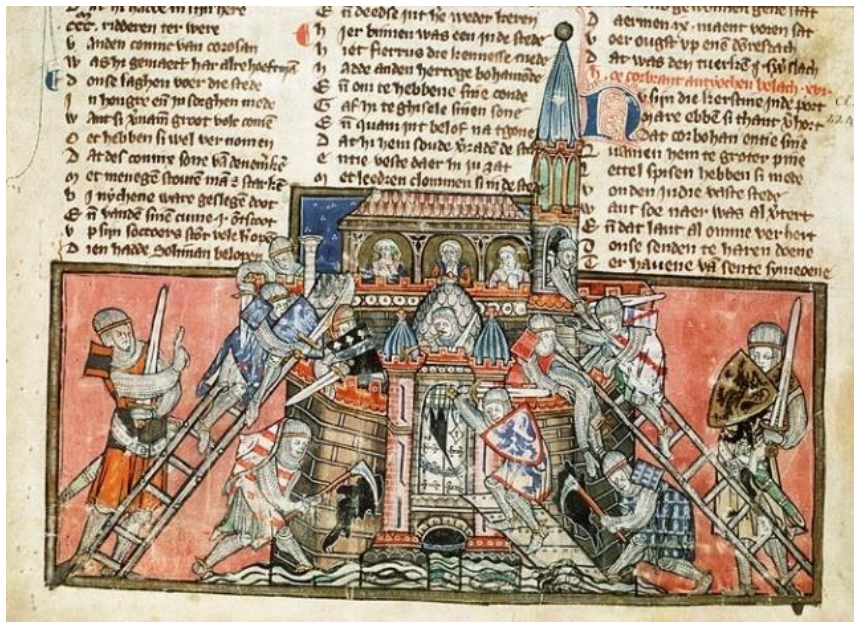 ccc. ridderen ter were
v anden coninc van corosan
w as hi gemaect har alre hoeftman
D onse laghen voer die stede
J n hongre en in sorghen mede
w ant si groot volc comen
O et hebben si wel vernomen
D at des coninx sone van denemerke
M et menegen stouten man en starken
B i nychene ware geslegen doot
E n vanden sinen cume .i. ontscoot
v p sijn soccoers stont vele hopen
D ien hadde Soliman belopen
E n deedse int he weder keren
h ier binnen was een in de stede
h iet fierrus die kennesse mede
h adde anden hertoge bohemonde
E n om te hebbene sine conde
G af hi te ghisele sinen sone
E n quam int belof na tgone
D at hi hem soude vraden de stat
E ntie veste daer hi in zat
M et leedren clommen si in de stede
D aermen maent voren sat
v oer ougst vp enen donresdach
D at was den tuerken .i. slach
h oe corbrant antyochen belach .xvi.
N v sijn die kerstine inde port
M are ebben si thant ghort
D at corbohan entie sine
q uamen hem te groter pine
L ettel spisen hebben si mede
v onden in die vaste stede
w ant soe naer was al vtert
E n dat lant al omme verhert
D onse senden te haren doene
T er havene van sente symeoene